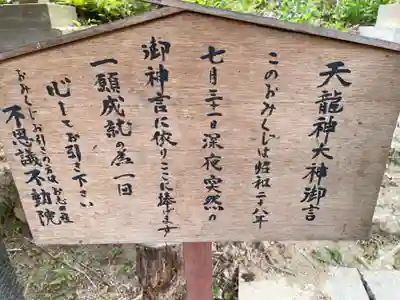 天龍神大神御言
このおみくじは昭和二十八年
七月三十一日深夜突然の
御神言に依りここに捧げます
一願成就の為一回
心してお引き下さい
おみくじお引きの方はお心の程
不思議不動院